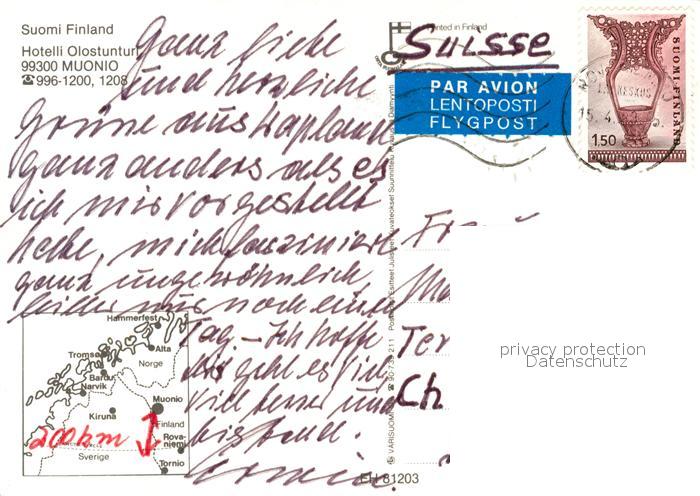 Suomi Finland
Hotelli Olostunturi
99300 MUONIO
☎996-1200, 1208
Ganz liebe
und herzliche
Grüsse aus Lappland
ganz anders als es
ich mir vorgestellt
habe, mich fasziniert
ganz ungewöhnlich
leider nur noch einen
Tag. – Ich hoffe
geht es viel
viel besser und
Printed in Finland
Suisse
PAR AVION
LENTOPOSTI
FLYGPOST
SUOMI-FINLAND
1.50
KESKUS
15.4.
Fr
Ch
privacy protection
Datenschutz
Hammerfest
Tromsø
Alta
Norge
Bardu
Narvik
Muonio
Kiruna
Finland
200 km
Rova-
niemi
Sverige
Tornio
EH 81203